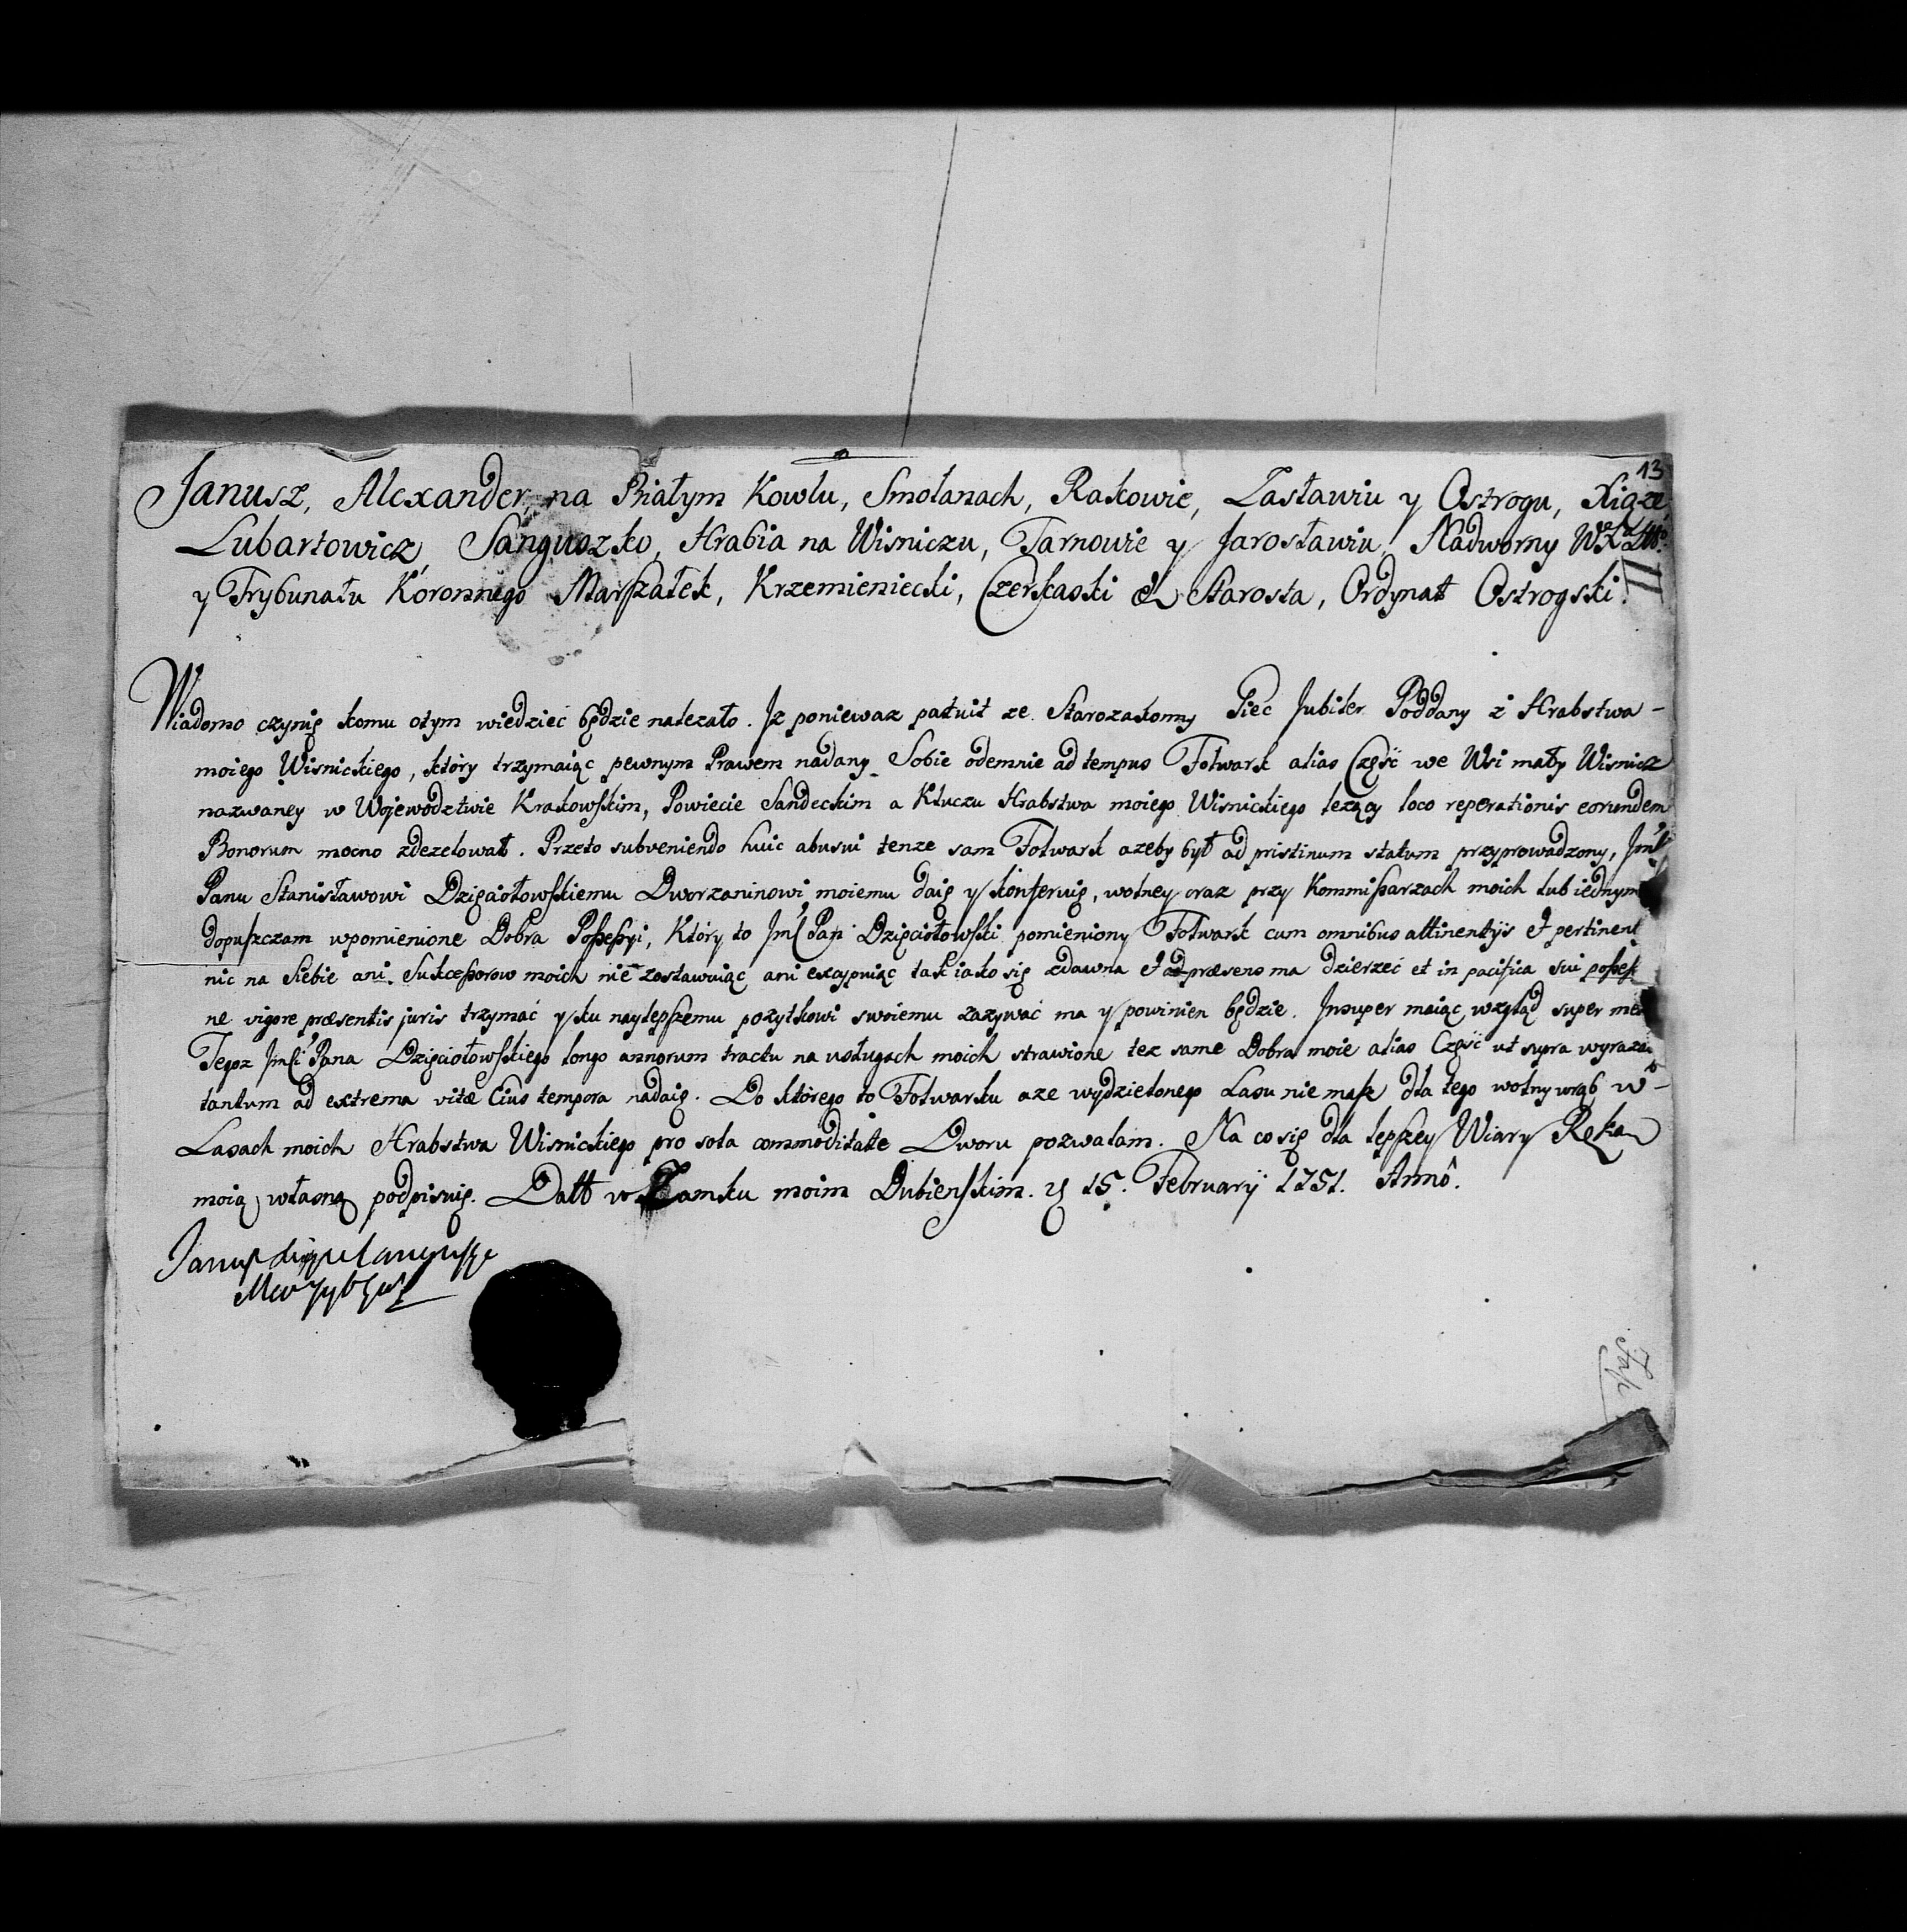 13
Janusz, Alexander, na Białym Kowlu, Smolanach, Rakowie, Zasławiu y Ostrogu, Xiąze,
Lubartowicz, Sanguszko, Hrabia na Wisniczu, Tarnowie y Jarosławiu, Nadworny
y Trybunału Koronnego Marszałek, Krzemieniecki, Czerkaski & Starosta, Ordynat Ostrogski.
Wiadomo czynię komu otym wiedzieć będzie nalezało. Jz poniewaz patuit ze Starozakonny Piec Jubiler Poddany z Hrabstwa -
moiego Wisnickiego, który trzymaiąc pewnym Prawem nadany Sobie odemnie ad tempus Folwark alias Część we Wsi mały Wisnicz
nazwaney w Wojewodztwie Krakowskim, Powiecie Sandeckim a Kluczu Hrabstwa moiego Wisnickiego lezący loco reperationis eorundem
Bonorum mocno zdezelował. Przeto subveniendo huic abusui tenze sam Folwark azeby był ad pristinum statum przyprowadzony,
Panu Stanisławowi Dzięciołowskiemu Dworzaninowi moiemu daię y konferuię, wolney oraz przy Kommissarzach moich lub iednym
dopuszczam wpomienione Dobra Possessyi, Który to Pan Dzięciołowski pomieniony Folwark cum omnibus attinentijs et pertinent
nic na Siebie ani Sukcessorow moich nie zostawuiąc ani excypuiąc tak iako się zdawna et ad præsens ma dzierzeć et in pacifica sui possess
ne vigore præsentis juris trzymać y ku naylepszemu pozytkowi swoiemu zazywać ma y powinien będzie. Jnsuper maiąc wzgląd super
Tegoz Jmści Pana Dzięciołowskiego longo annorum tractu na usługach moich strawione tez same Dobra moie alias Część ut supra
tantum ad extrema vitæ Eius tempora nadaię. Do którego to Folwarku aze wydzielonego Lasu nie masz dla tego wolny wrąb w -
Lasach moich Hrabstwa Wisnickiego pro sola commoditate Dworu pozwalam. Na co się dla lepszey Wiary Ręką
moią własną podpisuię. Datt w Zamku moim Dubienskim. D 15. February 1751. Annô.